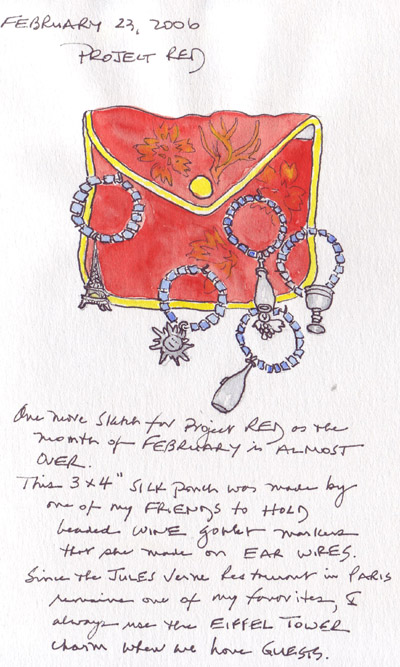 FEBRUARY 23, 2006
PROJECT RED
One more sketch for Project RED as the
month of FEBRUARY is ALMOST
OVER.
This 3 x 4" SILK pouch was made by
one of my FRIENDS to HOLD
beaded WINE goblet markers
that she made on EAR WIRES.
Since the JULES Verne Restaurant in PARIS
remains one of my favorites, I
always use the EIFFEL TOWER
charm when we have GUESTS.